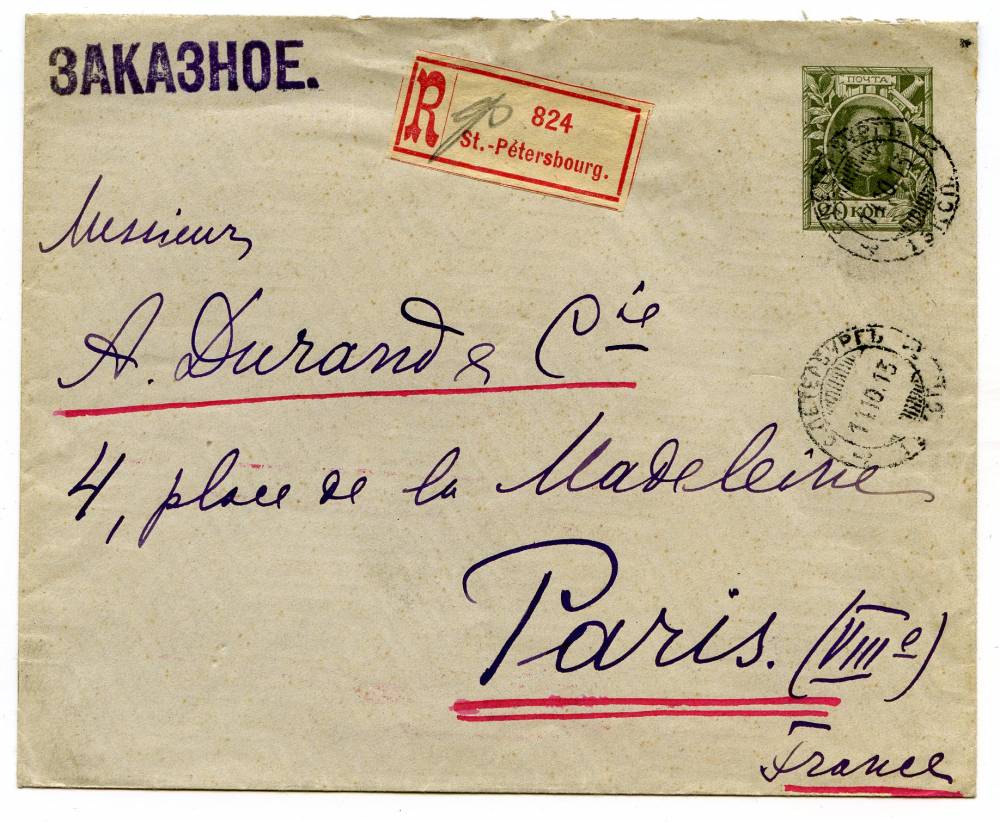 ЗАКАЗНОЕ.
R 824
St.-Pétersbourg.
ПОЧТА
20 КОП
Messieurs
A. Durand & Cie
4, place de la Madeleine
Paris. (VIIIe)
France
С.ПЕТЕРБУРГЪ
11.10.13